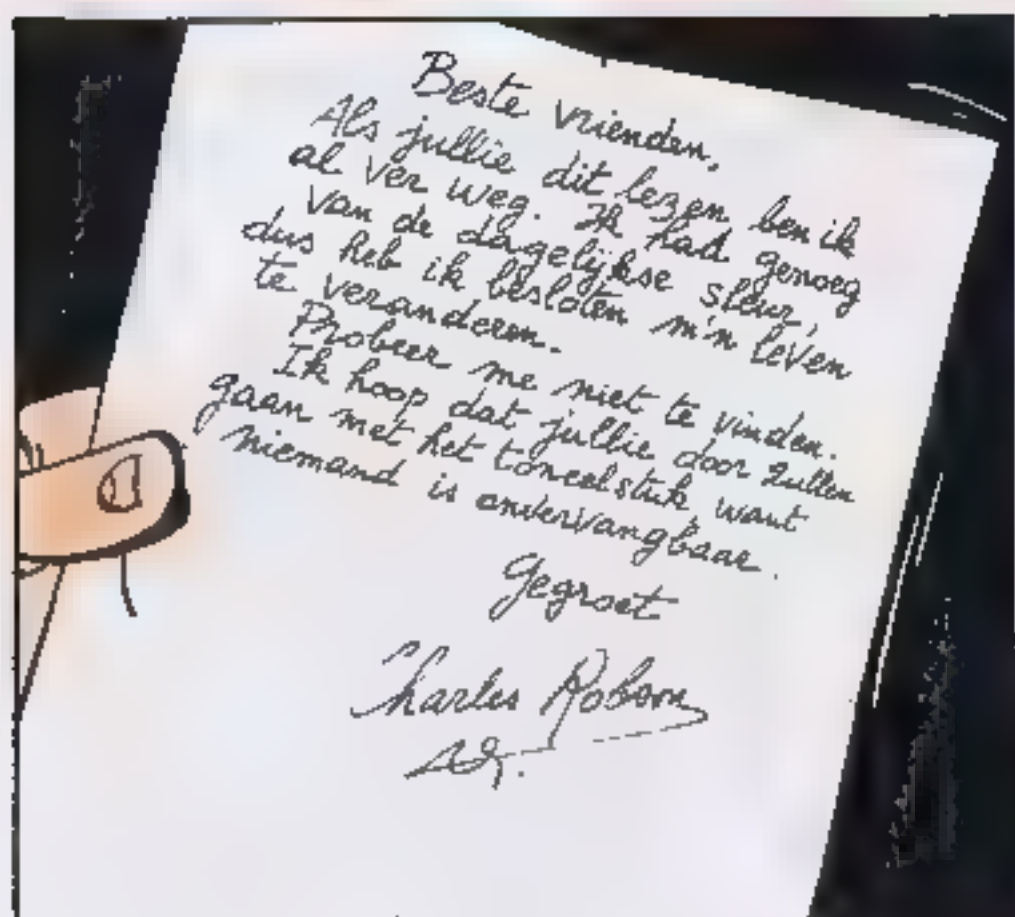 Beste vrienden,
Als jullie dit lezen ben ik
al ver weg. Ik had genoeg
van de dagelijkse sleur,
dus heb ik besloten m'n leven
te veranderen.
Probeer me niet te vinden.
Ik hoop dat jullie door zullen
gaan met het toneelstuk, want
niemand is onvervangbaar.
Gegroet
Charles Robson